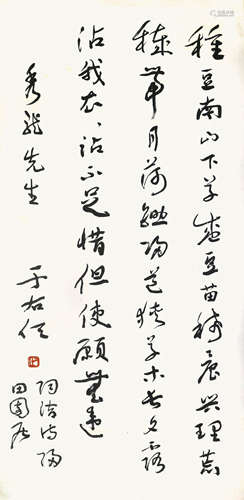 種豆南山下草盛豆苗稀晨興理荒
穢帶月荷鋤歸道狹草木長夕露
沾我衣〻沾不足惜但使願無違
秀龍先生
于右任
陶潛詩歸
田園居